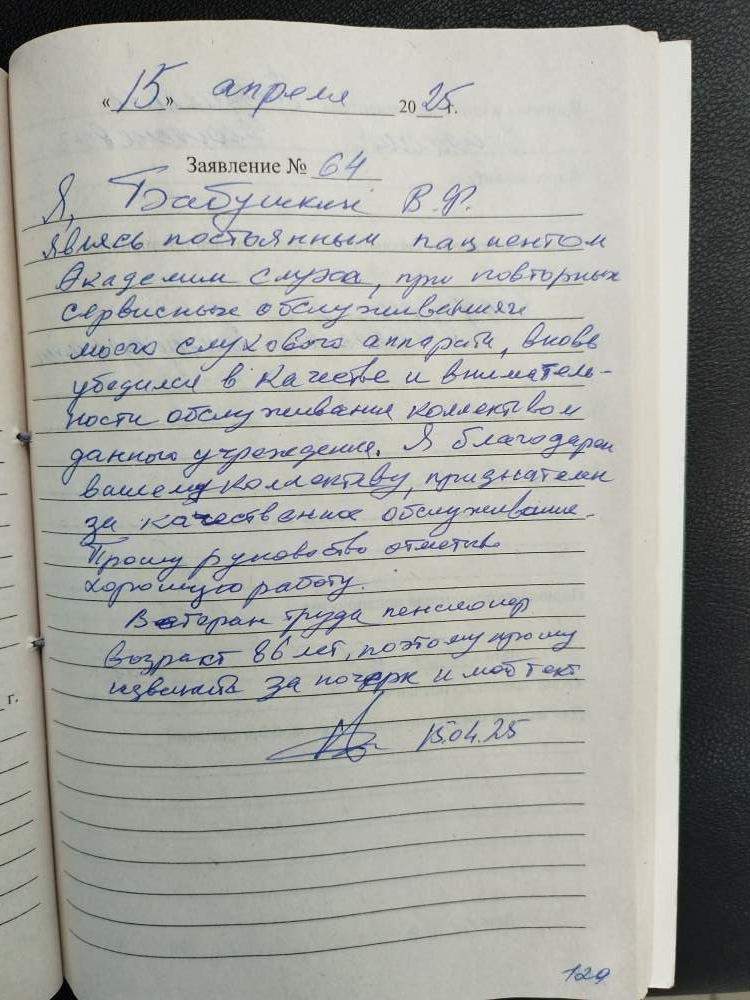 «15» апреля 2025 г.
Заявление № 64
Я, Бабушкин В.Ф.
являсь постоянным пациентом
Академии слуха, при повторных
сервисных обслуживаниях
моего слухового аппарата, вновь
убедился в качестве и вниматель-
ности обслуживания коллективом
данного учреждения. Я благодарен
вашему коллективу, признателен
за качественное обслуживание.
Прошу руководство отметить
хорошую работу.
Ветеран труда пенсионер
возракт 86 лет, поэтому прошу
извинить за почерк и мой текст
15.04.25
129
г.